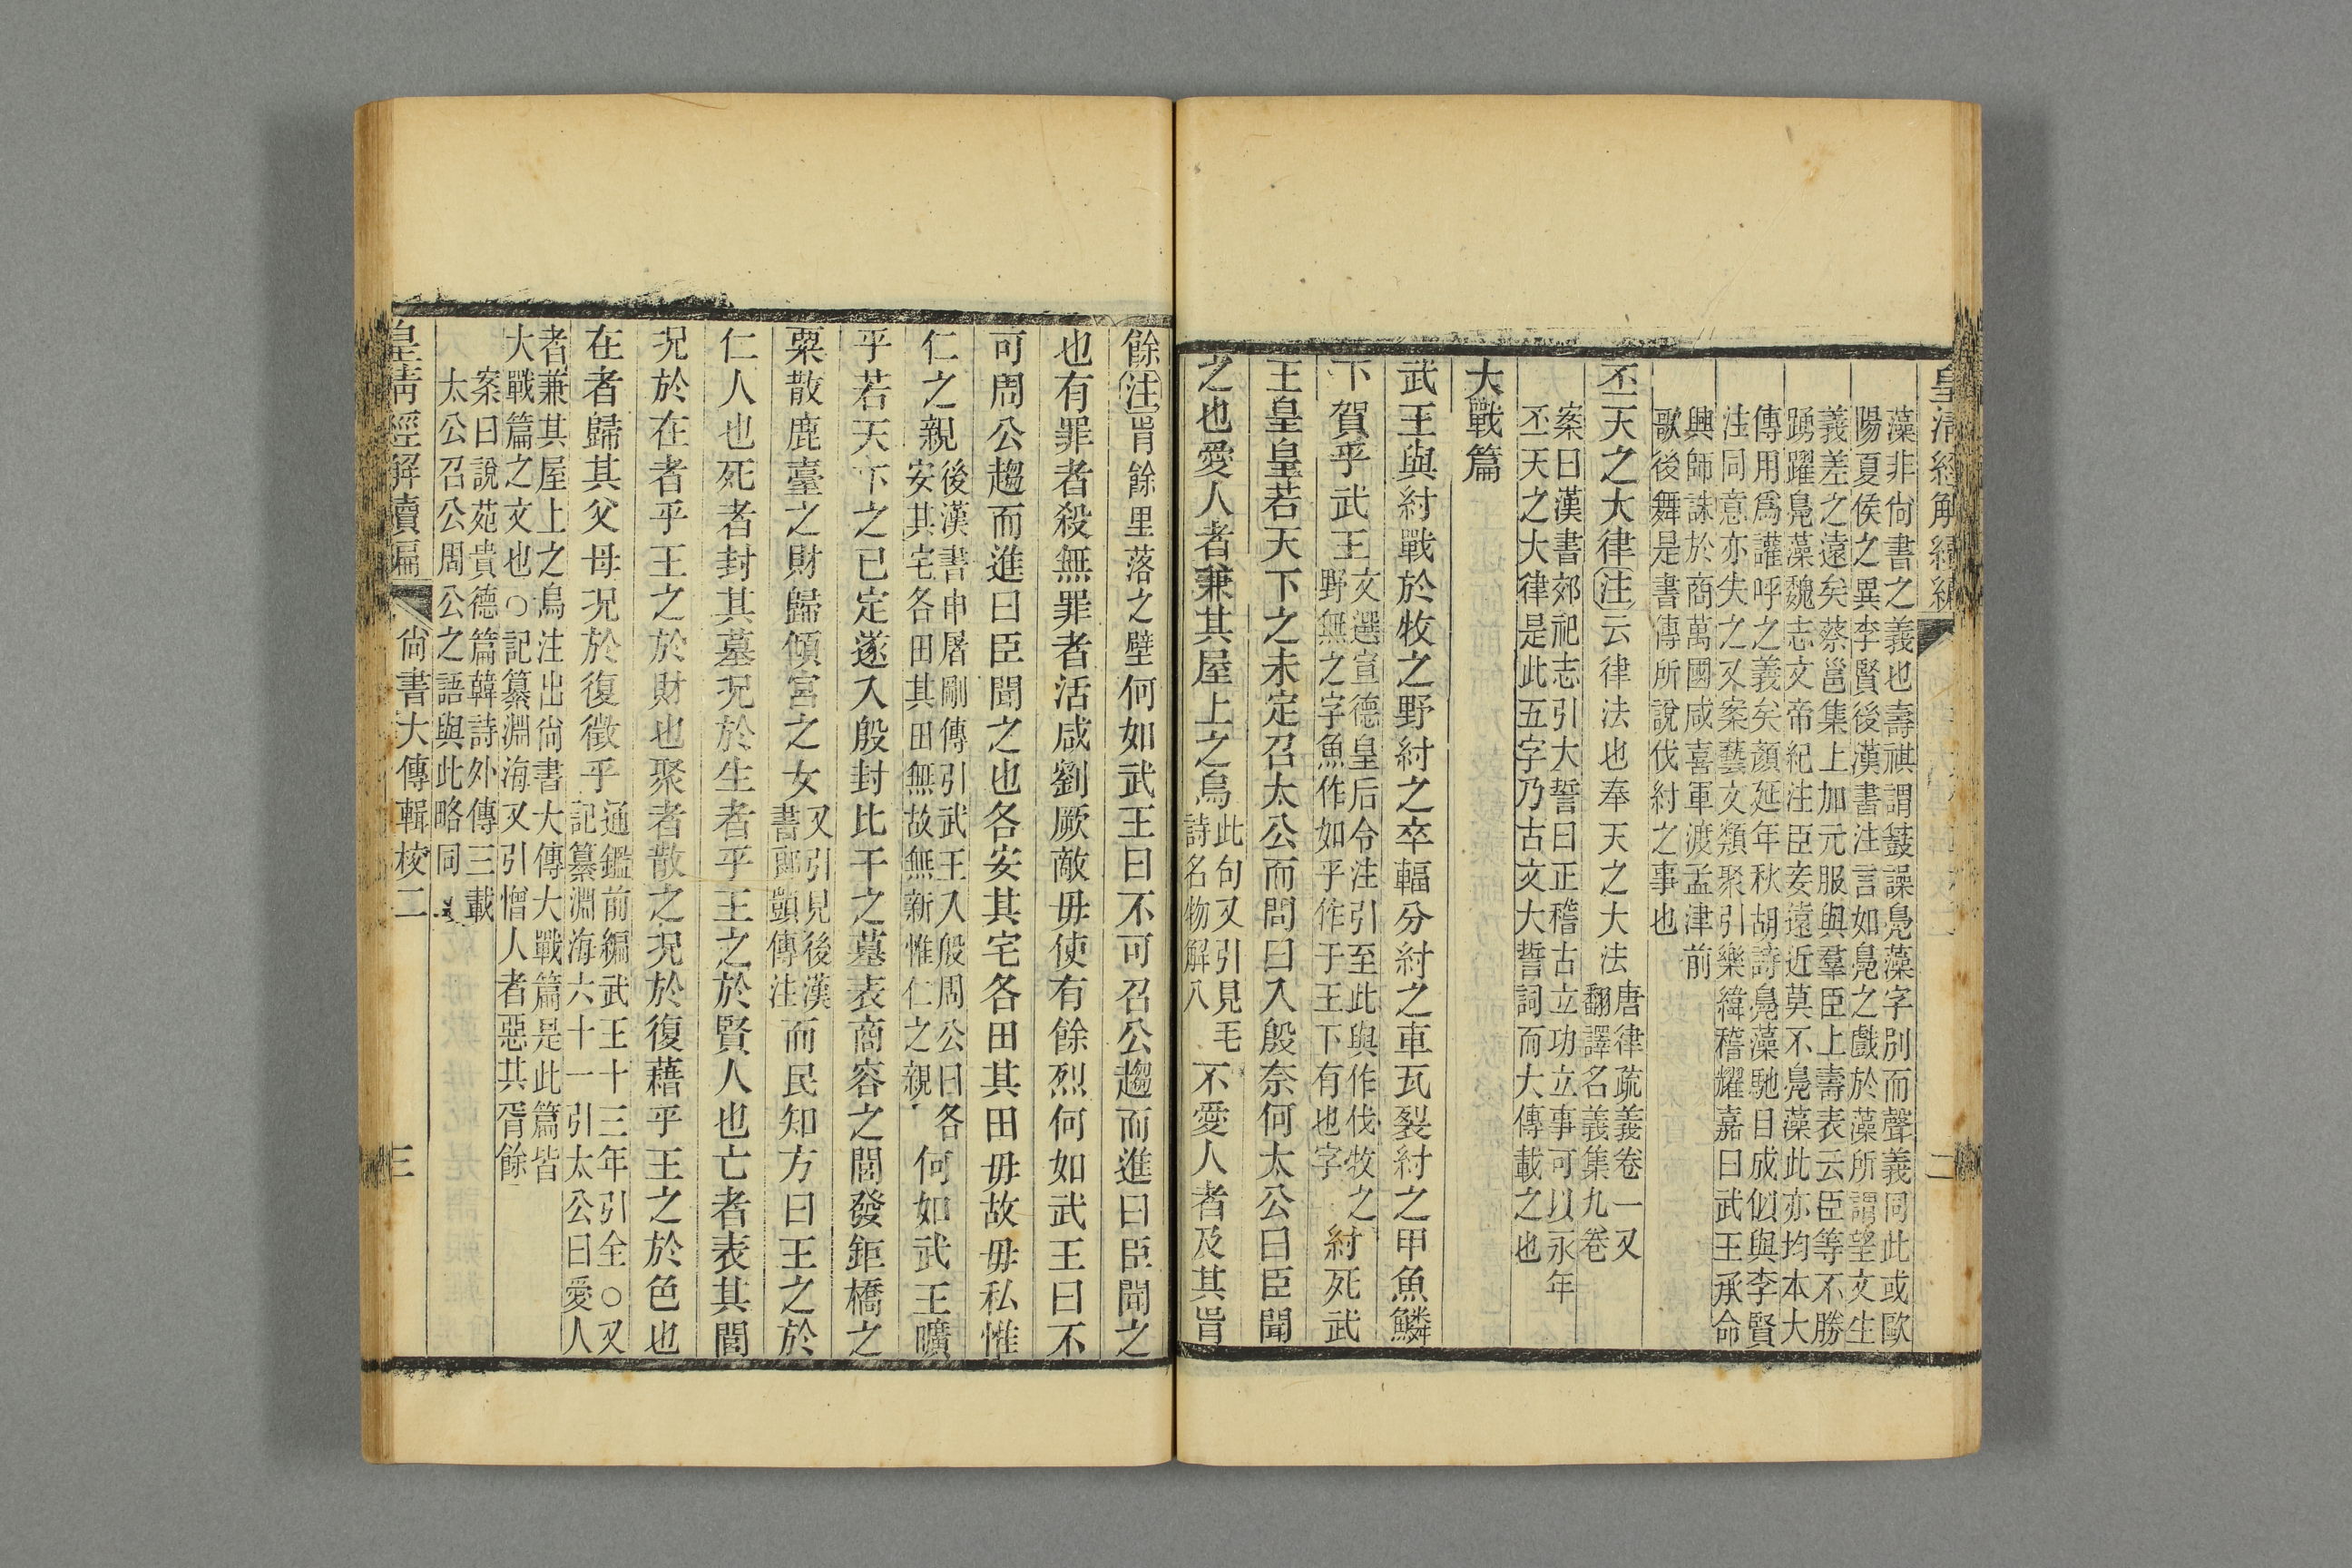 皇清經解續編
二
藻非尙書之義也壽祺謂鼓譟鳧藻字別而聲義同此或歐
陽夏侯之異李賢後漢書注言如鳧之戲於藻所謂望文生
義差之遠矣蔡邕集上加元服與羣臣上壽表云臣等不勝
踴躍鳧藻魏志文帝紀注臣妾遠近莫不鳧藻此亦均本大
傳用爲讙呼之義矣顏延年秋胡詩鳧藻馳目成似與李賢
注同意亦失之又案藝文類聚引樂緯稽耀嘉曰武王承命
興師誅於商萬國咸喜軍渡孟津前
歌後舞是書傳所說伐紂之事也
丕天之大律注云律法也奉天之大法唐律疏義卷一又
翻譯名義集九卷
案曰漢書郊祀志引大誓曰正稽古立功立事可以永年
丕天之大律是此五字乃古文大誓詞而大傳載之也
大戰篇
武王與紂戰於牧之野紂之卒輻分紂之車瓦裂紂之甲魚鱗
下賀乎武王文選宣德皇后令注引至此與作伐牧之
野無之字魚作如乎作于王下有也字紂死武
王皇皇若天下之未定召太公而問曰入殷奈何太公曰臣聞
之也愛人者兼其屋上之烏此句又引見毛
詩名物解八不愛人者及其胥
餘注胥餘里落之壁何如武王曰不可召公趨而進曰臣聞之
也有罪者殺無罪者活咸劉厥敵毋使有餘烈何如武王曰不
可周公趨而進曰臣聞之也各安其宅各田其田毋故毋私惟
仁之親後漢書申屠剛傳引武王入殷周公曰各
安其宅各田其田無故無新惟仁之親何如武王曠
乎若天下之已定遂入殷封比干之墓表商容之閭發鉅橋之
粟散鹿臺之財歸傾宮之女又引見後漢
書郎顗傳注而民知方曰王之於
仁人也死者封其墓況於生者乎王之於賢人也亡者表其閭
況於在者乎王之於財也聚者散之況於復藉乎王之於色也
在者歸其父母況於復徵乎通鑑前編武王十三年引全○又
記纂淵海六十一引太公曰愛人
者兼其屋上之烏注出尙書大傳大戰篇是此篇皆
大戰篇之文也○記纂淵海又引憎人者惡其胥餘
案曰說苑貴德篇韓詩外傳三載
太公召公周公之語與此略同
皇淸經解續編
尙書大傳輯校二
三